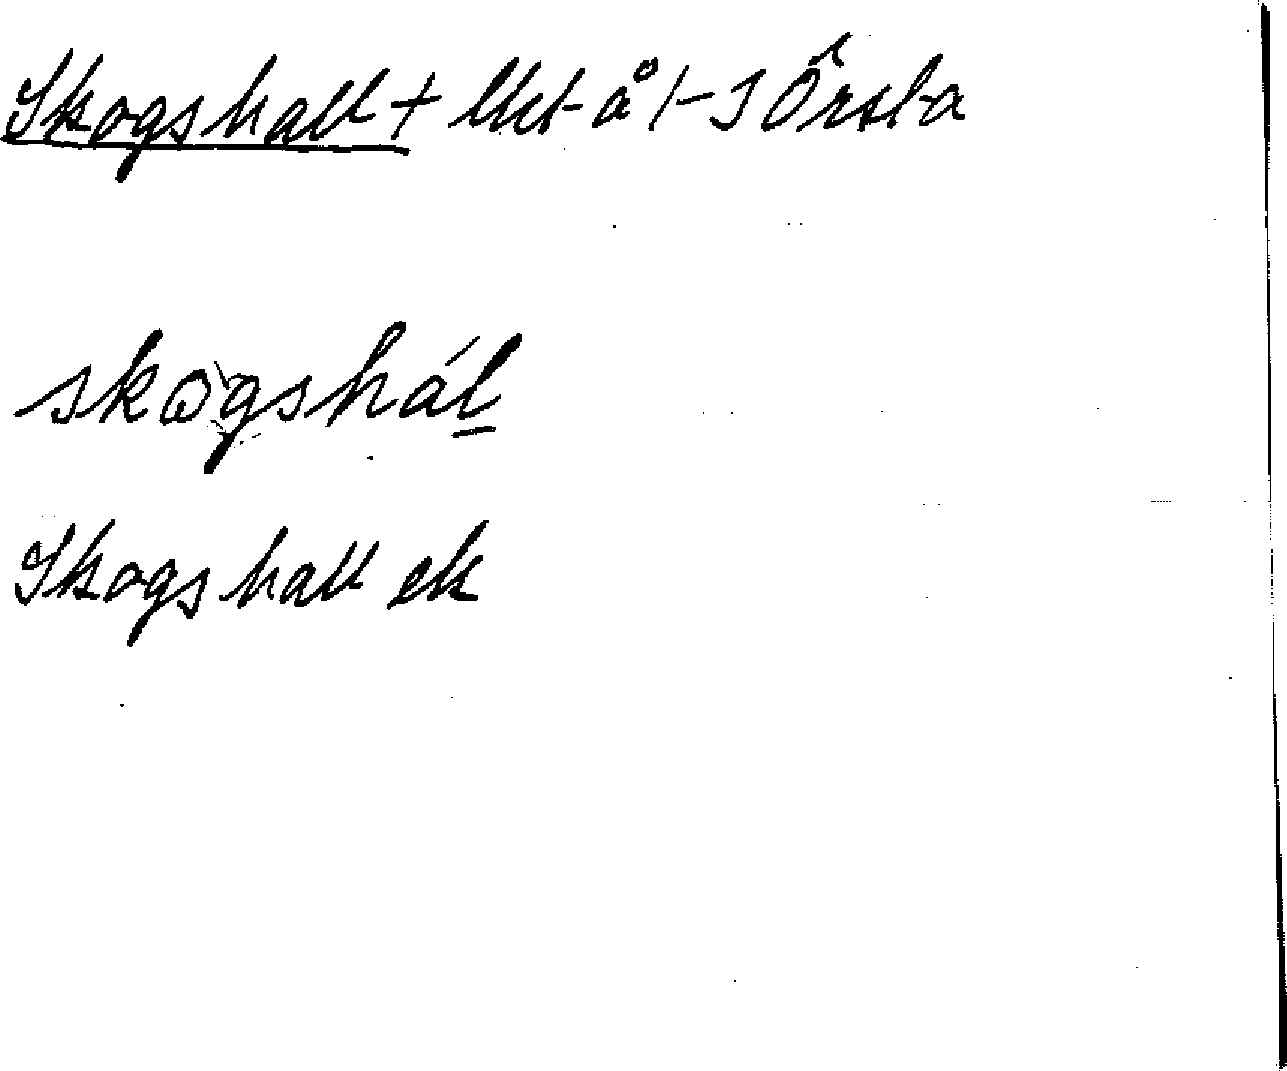 Skogshall + Ukt å t S Örsta
skogshál
Skogshall ek